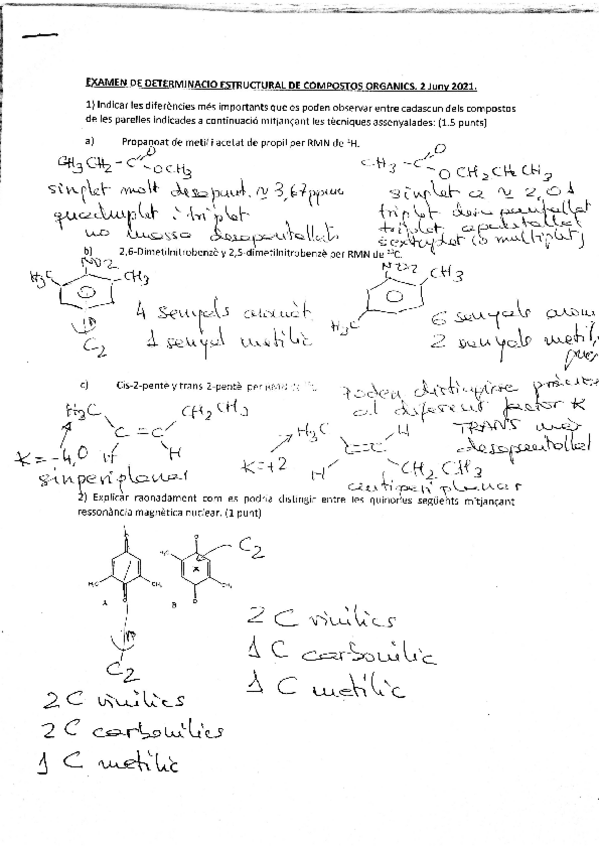 EXAMEN DE DETERMINACIO ESTRUCTURAL DE COMPOSTOS ORGANICS. 2 Juny 2021.
1) Indicar les diferències més importants que es poden observar entre cadascun dels compostos
de les parelles indicades a continuació mitjançant les tècniques assenyalades: (1.5 punts)
a) Propanoat de metil i acetat de propil per RMN de ¹H.
CH3 CH2 - C O OCH3
CH3 - C O O CH2 CH2 CH3
singlet molt desapant. ≃ 3,67 ppm
quadruplet i triplet
no massa desapantallats
singlet a ≃ 2,01
triplet desapantallat
triplet apantallat
sextuplet (o multiplet)
b) 2,6-Dimetilnitrobenzè y 2,5-dimetilnitrobenzè per RMN de ¹³C.
NO2
H3C CH3
C2
4 senyals aromàt
1 senyal metilic
NO2 CH3
H3C
6 senyals arom
2 senyals metil
c) Cis-2-pente y trans 2-pentè per RMN
Poden distingirse
al diferent factor K
TRANS més
desapantallat
H3C CH2CH3
C = C
H H
K = -4,0
sinperiplanar
H3C H
C = C
H CH2 CH3
K = +2
antiperiplanar
2) Explicar raonadament com es podria distingir entre les quinones següents mitjançant
ressonància magnètica nuclear. (1 punt)
H3C CH3
A
C2
H3C CH3
B
C2
2 C vinilics
1 C carbonilic
1 C metilic
2 C vinilics
2 C carbonilics
1 C metilic